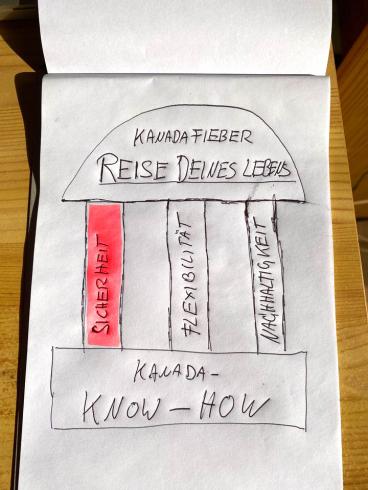 KANADAFIEBER
REISE DEINES LEBENS
SICHERHEIT
FLEXIBILITÄT
NACHHALTIGKEIT
KANADA-
KNOW-HOW